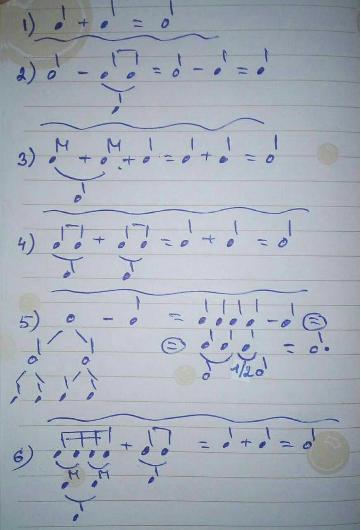 1) ♩ + ♩ = 𝅗𝅥
2) 𝅗𝅥 - ♫ = 𝅗𝅥 - ♩ = ♩
♩
3) ♪ + ♪ + ♩ = ♩ + ♩ = 𝅗𝅥
♩
4) ♫ + ♫ = ♩ + ♩ = 𝅗𝅥
♩ ♩
5) 𝅝 - ♩ = ♩ ♩ ♩ ♩ - ♩ =
𝅗𝅥 𝅗𝅥 = ♩ ♩ ♩ = 𝅗𝅥.
♩ ♩ ♩ ♩ 𝅗𝅥 1/2 𝅗𝅥
6) ♬♬ + ♫ = ♩ + ♩ = 𝅗𝅥
♪ ♪ ♩
♩